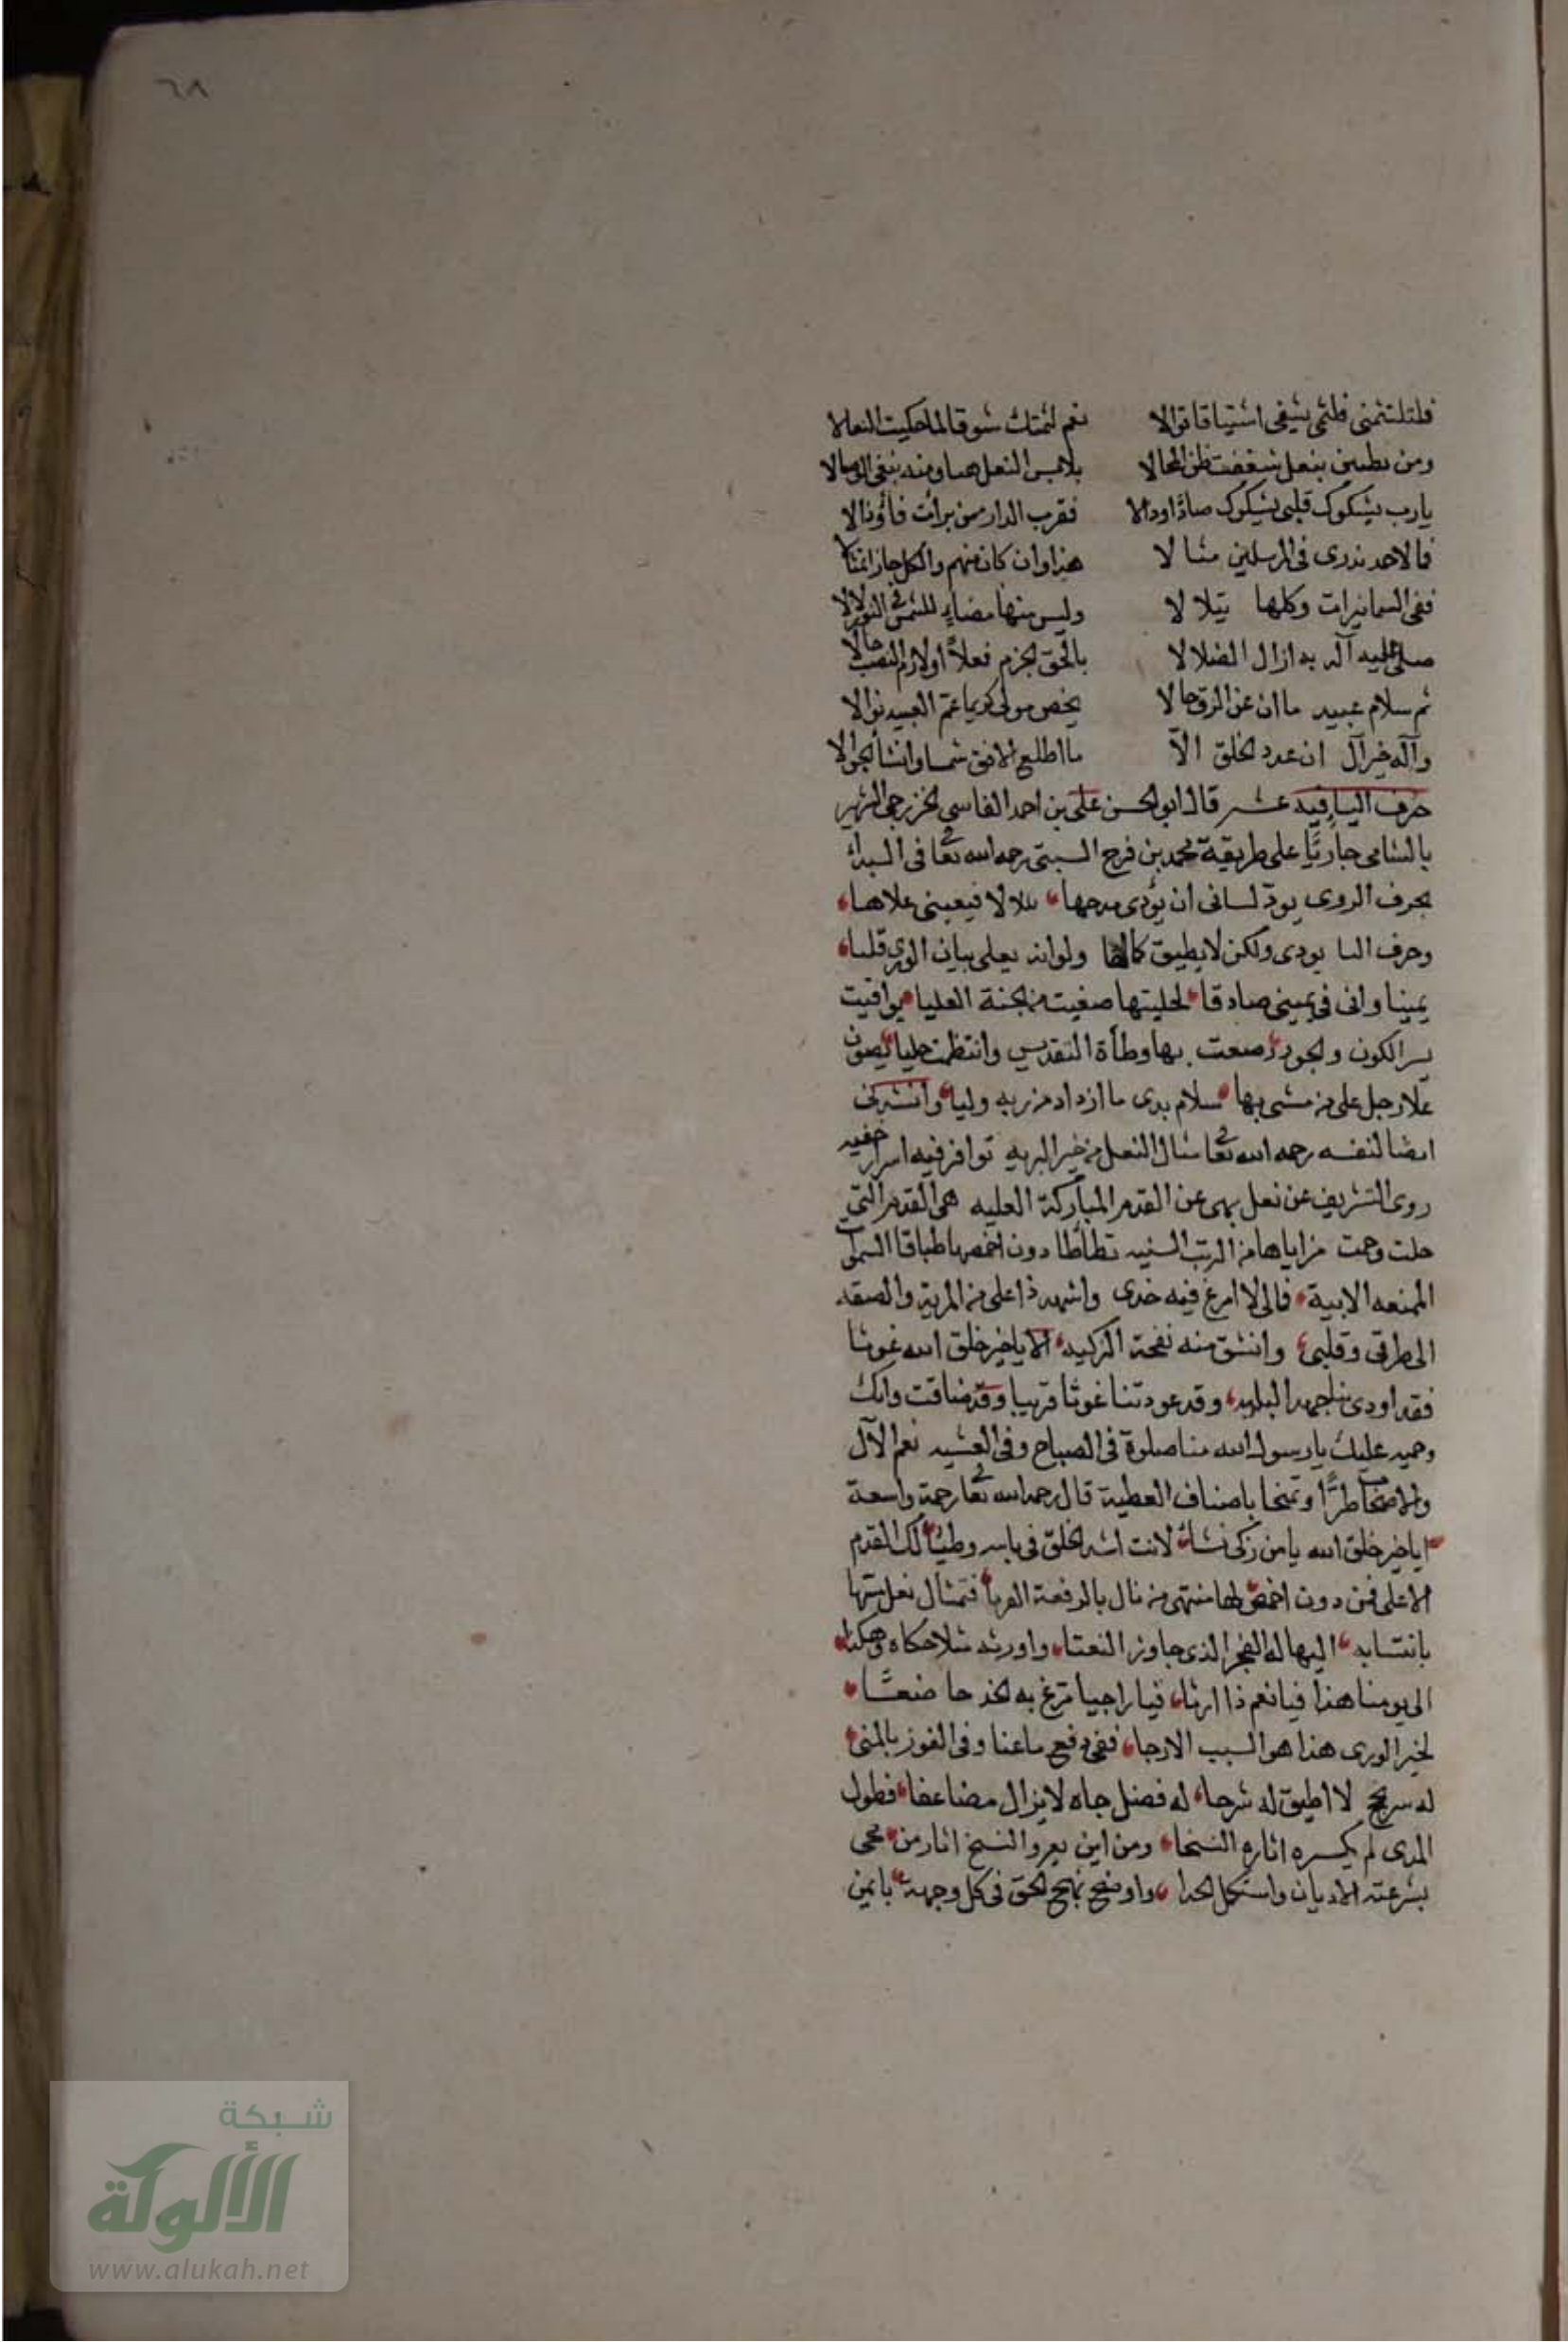 ٦٨
فلتلتثمنى فلثمى يشفى اشتياقا توالا نعم لثمتك شوقا لما حكيت النعالا
ومن بنعل شغفت ظن المحالا بلابس النعل ومنه نبغى الوصالا
يارب يشكوك قلبى يشكوك فقرب الدار ممن
فما لاحد ندرى فى المرسلين مثالا هذا وان كان منهم والكل حاز
ففى السما نيرات وكلها يتلالا وليس منها مضاء للشمس فى النور لالا
صلى عليه آله به ازال الضلالا بالحق لجزم فعلاً اولازم النصب حالا
ثم سلام عبيد ما ان عن الرق حالا يخص مولى كريما عمّ العبيد نوالا
وآله خير آل ان عدد الخلق الآ ما اطلع الافق شمسا وانشا
حرف اليا فيه عشر قال ابو الحسن على بن احمد الفاسي الخزرجى الشهير
بالشامى جاريًا على طريقة محمد بن فرج السبتى رحمه الله تعا فى البدائ
بحرف الروى يودّ لسانى ان يؤدى مدحها فيعيينى علاها
وحرف اليا يودى ولكن لا يطيق كمالها ولو انه يعلى بيان الورى قليا
يمينا وانى فى يمينى صادقا لحليتها صغيت من الجنة العليا يواقيت
سر الكون والجود رصعت بها وطأة التقديس وانتظمت حليا يصون
علا رجل على من مشى بها سلام يدى ما ازداد من ربه وليا وانشدنى
ايضا لنفسه رحمه الله تعا مثال النعل من خير البريه توافر فيه اسرار خفيه
روى التشريف عن نعل بهى عن القدم المباركة العليه هى القدم التى
حلت وحمت مزاياها من الرتب السنيه تطأطأ دون اخمصها طباقا السموات
الممنعه الابية فمالى لا امرغ فيه خدى واشهد ذا على من المزية والصقه
الى طرفى وقلبى وانشق منه نفحته الزكيه الا يا خير خلق الله غوثا
فقد اودى بنا جهد البليه وقد عودتنا غوثا قريبا وقد ضاقت وانك
وحميه عليك يا رسول الله منا صلوة فى الصباح وفى العشيه نعم الآل
والاصحاب طرًّا وتمنحا باصناف العطية قال رحمه الله تعا رحمة واسعة
ايا خير خلق الله يا من زكى نشا لانت اشد الخلق فى باسه وطيًا لك القدم
الاعلى فمن دون اخمص لها منتهى من نال بالرفعة فتمثال نعل
بانتسابه اليها له الفخر الذى جاوز النعتا واورثه مثلا حكاه وهكذا
الى يومنا هذا فيا نعم ذا ارثا فيا راجيا مرغ به الخد خاضعًا
لخير الورى هذا هو السبب الارجا ففى دفع ما عنا وفى الفوز بالمنى
له سر لا اطيق له شرحا له فضل جاه لا يزال مضاعفا فطول
المدى لم يكسره اثاره النسخا ومن اين يعرو النسخ اثار من محى
بشرعته الاديان واستكمل الحدا واوضح نهج الحق فى كل وجهة بايمن
شبكة
الألوكة
www.alukah.net